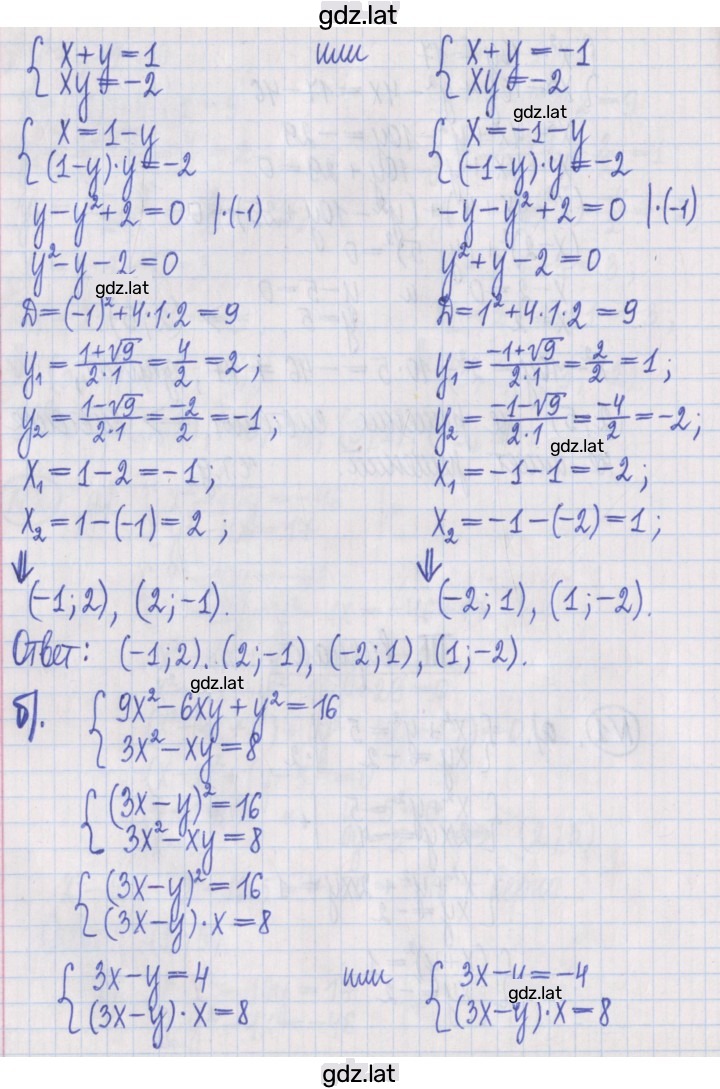 gdz.lat
{ x+y=1 или { x+y=-1
xy=-2 xy=-2
gdz.lat
{ x=1-y { x=-1-y
(1-y)·y=-2 (-1-y)·y=-2
y-y²+2=0 |·(-1) -y-y²+2=0 |·(-1)
y²-y-2=0 y²+y-2=0
gdz.lat
D=(-1)²+4·1·2=9 D=1²+4·1·2=9
y₁=(1+√9)/(2·1)=4/2=2; y₁=(-1+√9)/(2·1)=2/2=1;
y₂=(1-√9)/(2·1)=-2/2=-1; y₂=(-1-√9)/(2·1)=-4/2=-2;
gdz.lat
x₁=1-2=-1; x₁=-1-1=-2;
x₂=1-(-1)=2; x₂=-1-(-2)=1;
⇓ ⇓
(-1;2), (2;-1). (-2;1), (1;-2).
Ответ: (-1;2), (2;-1), (-2;1), (1;-2).
gdz.lat
б). { 9x²-6xy+y²=16
3x²-xy=8
{ (3x-y)²=16
3x²-xy=8
{ (3x-y)²=16
(3x-y)·x=8
{ 3x-y=4 или { 3x-y=-4
gdz.lat
(3x-y)·x=8 (3x-y)·x=8
gdz.lat